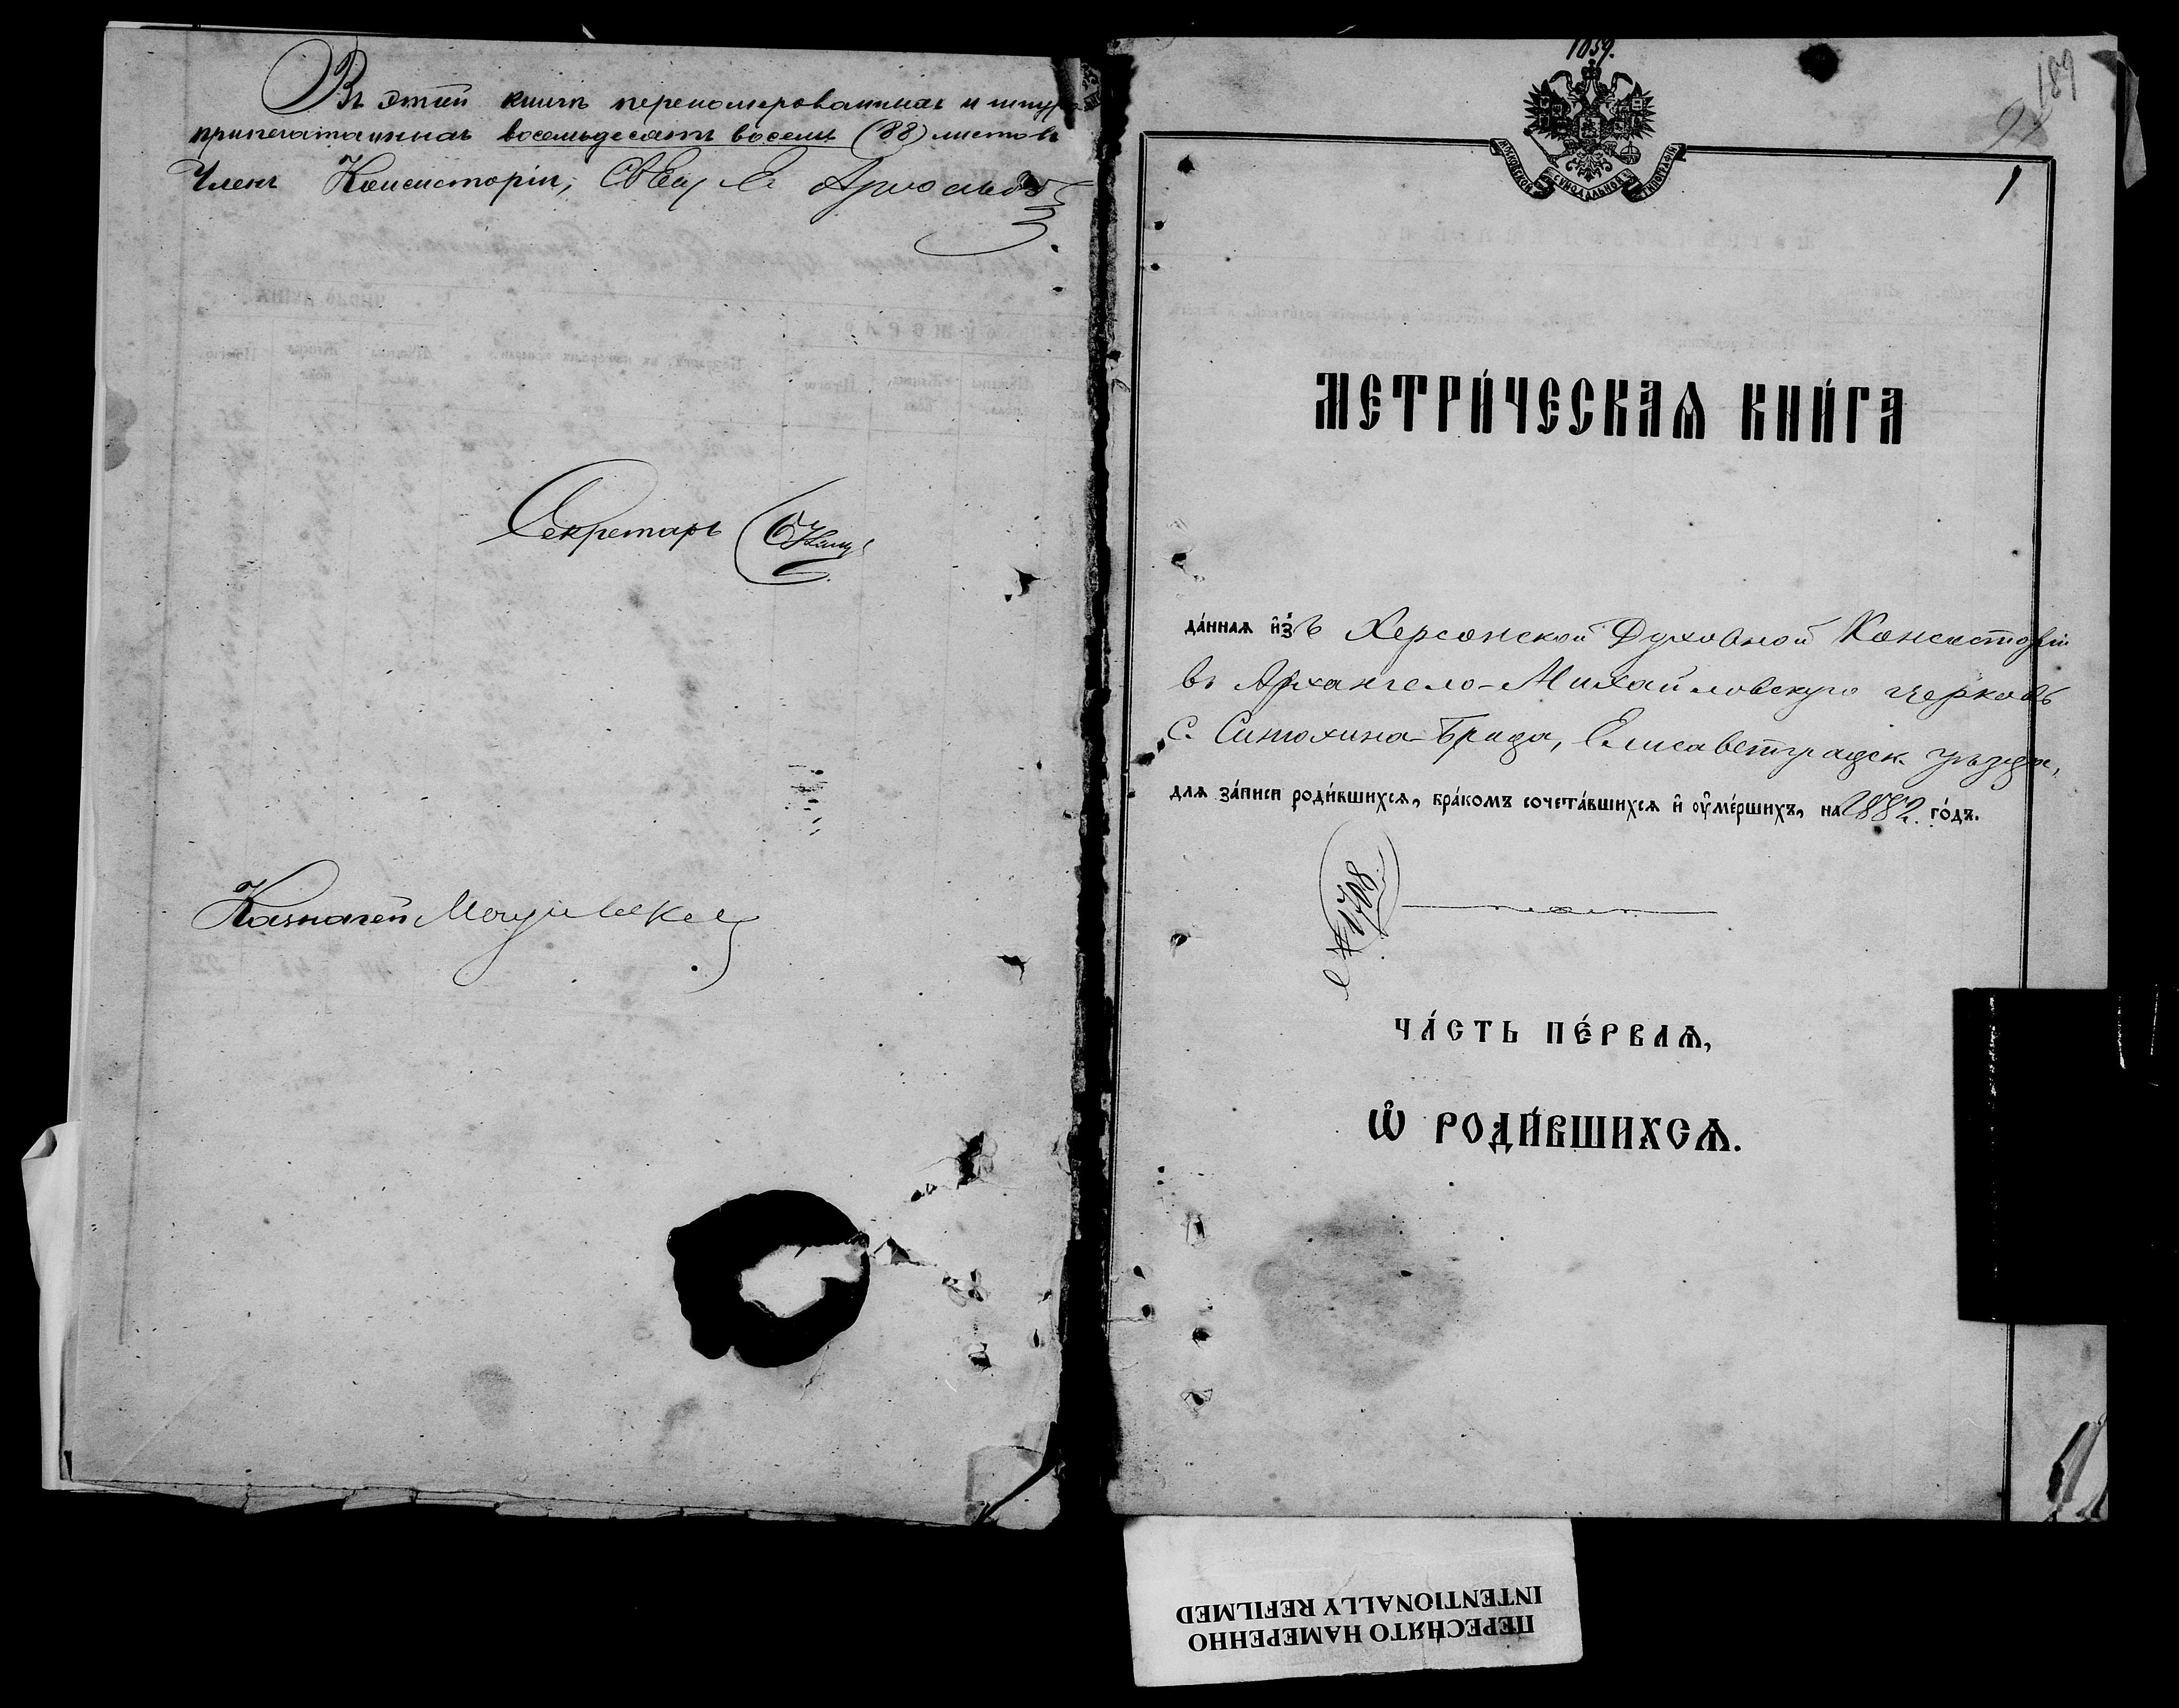 Въ этой книгѣ переномерованныхъ и шнуро
припечатанныхъ восемьдесятъ восемь (88) листовъ
Членъ Консисторіи,
Секретарь
Казначей
1059.
189
МОСКОВСКОЙ СѴНОДАЛЬНОЙ ТИПОГРАФІИ
1
МЕТРИ́ЧЕСКАѦ КНИ́ГА
да́ннаѧ и҆з̾ъ Херсонской Духовной Консисторіи
въ Архангело-Михайловскую церковь
с. Синюхина-Брида, Елисаветградск. уѣзда,
длѧ за́писи роди́вшихсѧ, бра́комъ сочета́вшихсѧ и҆ оу҆ме́ршихъ, на 1882. го́дъ.
№ 1708.
ЧА́СТЬ ПЕ́РВАѦ,
Ѽ РОДИ́ВШИХСѦ.
ПЕРЕСНЯТО НАМЕРЕННО
INTENTIONALLY REFILMED